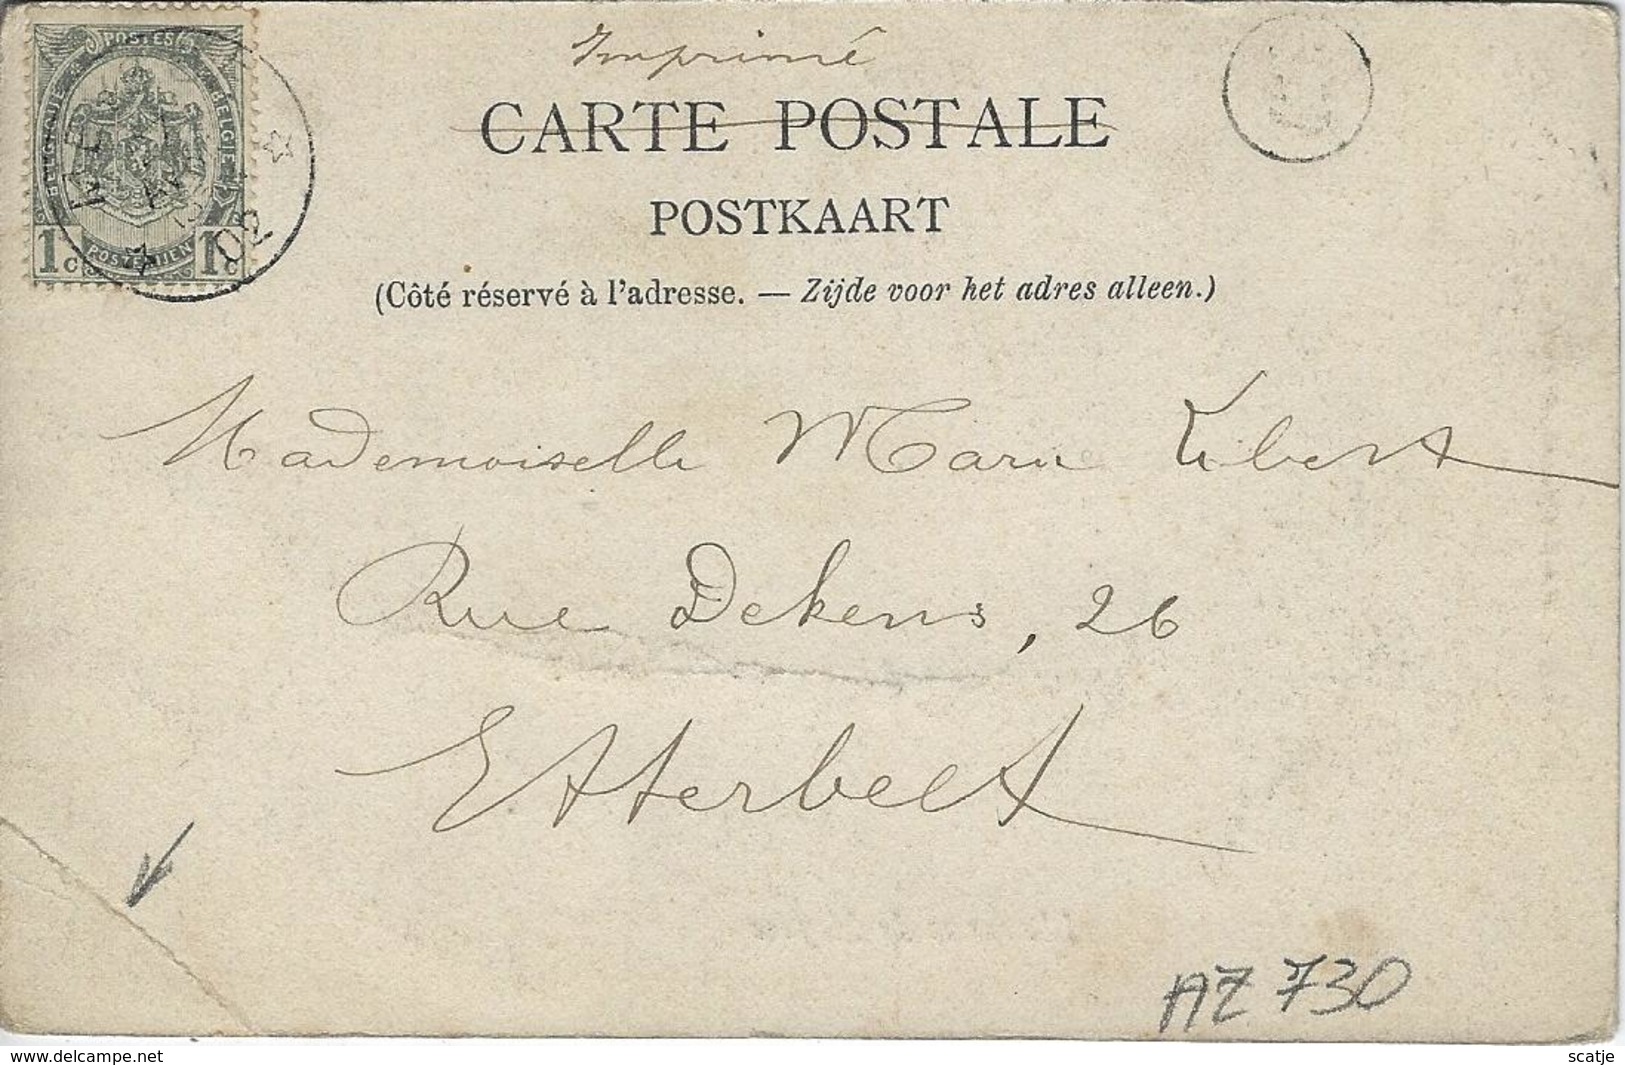 Imprimé
POSTES
BELGIQUE
BELGIE
1c POSTERIJEN 1c
02
CARTE POSTALE
POSTKAART
(Côté réservé à l'adresse. — Zijde voor het adres alleen.)
Mademoiselle Marie Kibert
Rue Dekens, 26
Etterbeek
AZ 730
www.delcampe.net
scatje